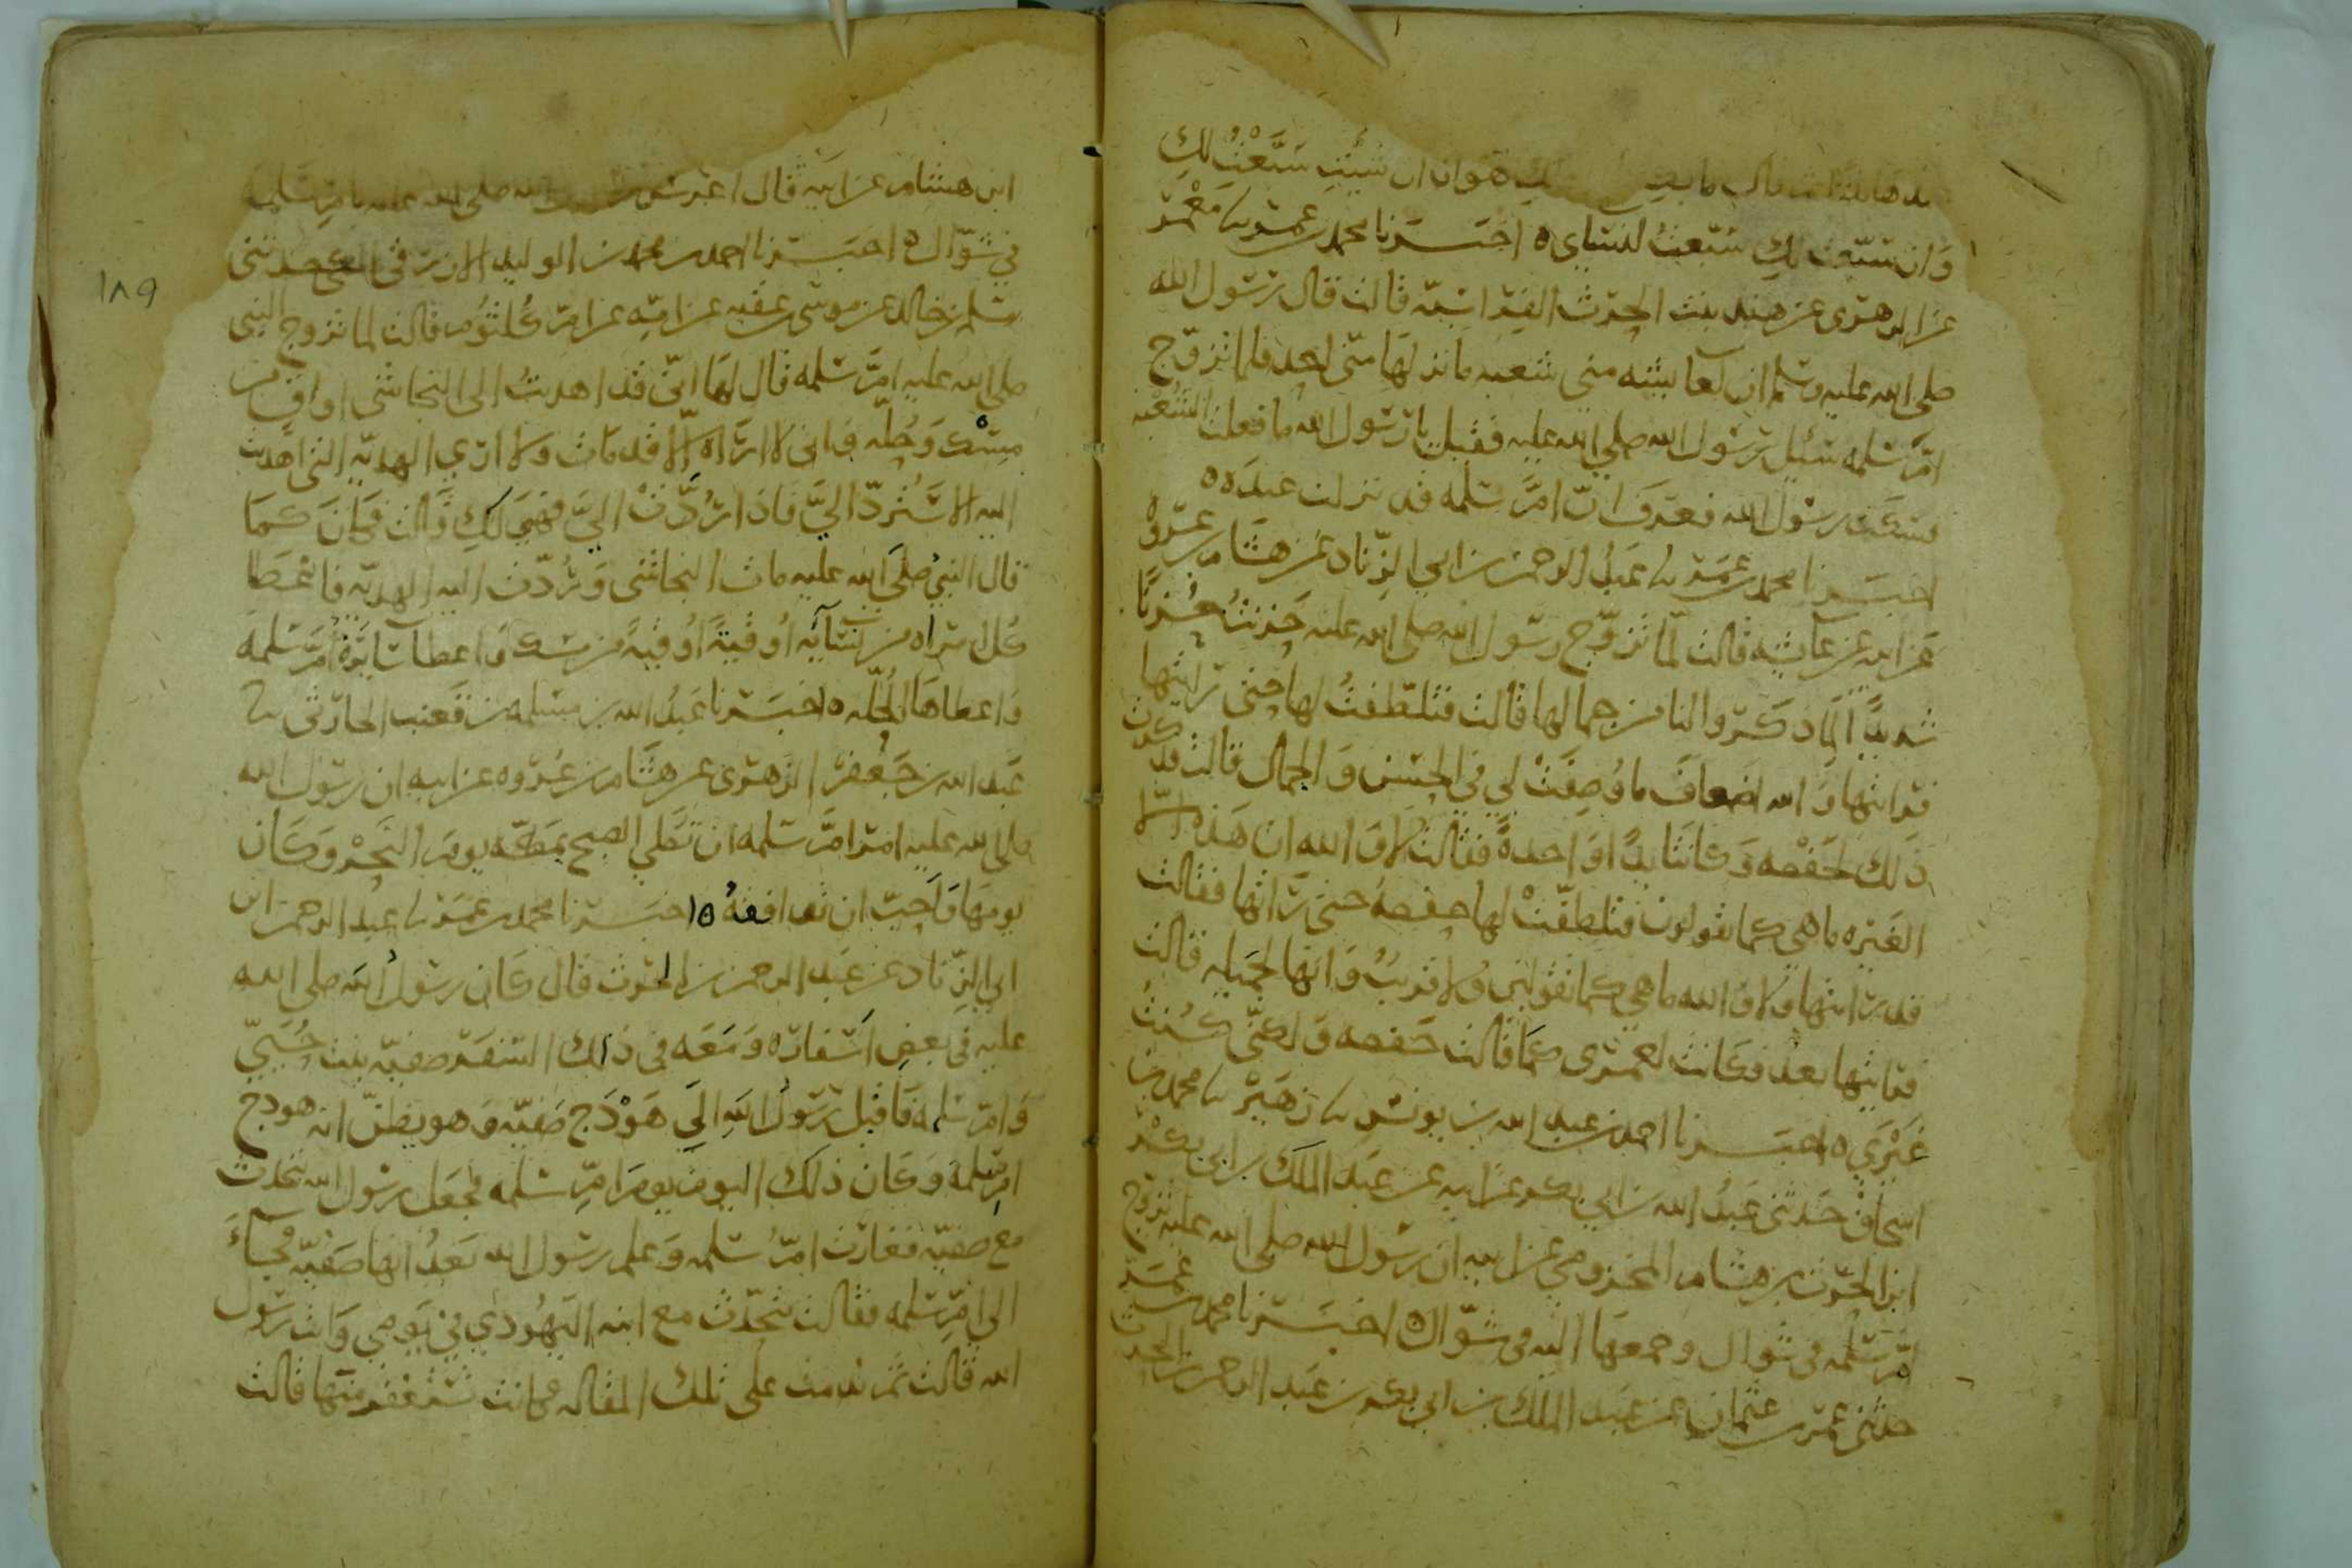 هوان ان شئتِ سَبَّعْتُ لكِ
وَان سَبّعتُ لكِ سَبّعتُ لنسَاي ه اخبَرنا محمد بن عمر نا مَعْمَر
عن الزهرى عن هند بنت الحرث الفِراسيّة قالت قال رسول الله
صلى الله عليه وسلم ان لعايشه مني شعبه ما نزلها منّى احد فلما تزوّج
امّ سَلمه سُيل رسُول الله صلي الله عليه فقيل يا رسُول الله ما فعلت الشعبه
فسَكت رسُول الله فعرفَ انّ امّ سَلمه قد نزلت عندَه ه
اخبَرنا محمد بن عمَر نا عَبدُ الرحمن بن ابي الزّناد عَن هشَام بن عروَة
عَن ابيه عن عَايشه قالت لمّا تزوّج رسُول الله صلى الله عليه حَزنتُ حُزنًا
شديدًا لمِا ذكرُوا لنا من جمالها قالت فتلطّفتُ لها حتى رايتها
فرايتها وَ الله اضعافَ ما وُصِفَتْ لي في الحُسْن وَ الجمال قالت فذكرت
ذَلك لحَفصه وَكانتَا يدًا وَاحدةً فقالت لا وَ الله ان هَذه الّا
الغَيره ما هي كما تقولون فتلطفّتْ لها حفصهُ حتى رَاتها فقالت
قد رَايتها وَلا وَ الله ما هي كما تقُولين وَلا قريبُ وَ انها لجميله قالت
فرايتها بعدُ فكانت لعَمرى كما قالت حَفصه وَ لكنّى كنتُ
غَيْرَي ه اخبَرنا احمد بن عبد الله بن يونس نا زهَيْر نا محمد بن
اسحاق حَدثنى عَبدُ الله بن ابي بكر عن ابيه عن عَبد الملك بن ابى بكر
ابن الحرث بن هشام المخزومي عن ابيه ان رسُول الله صلى الله عليه تزوج
امّ سَلمه في شوال وجمعَها اليه في شوّال ه اخبَرنا محمد بن عمَر
حدثني عمر بن عثمان عن عبد الملك بن ابي بكر بن عَبد الرحمن بن الحرث
ابن هشام عن ابيه قال اعرس رسول الله صلى الله عليه بامّ سَلمه
في شوّال ه اخبَرنا احمد بن محمد بن الوليد الازرقي المكى حدثني
١٨٩
مسلم بن خالد عن موسى بن عقبه عن امّه عن امّ كُلثوُم قالت لما تزوج النبي
صلى الله عليه امَّ سَلمه قال لهَا انّى قد اهديتُ الى النجاشى اواقي من
مِسْك وَحُلّه وانى لا ارَاه الّا قد مَات ولا ارَي الهديّه التي اهديت
اليه الا سَتُردّ اليَّ فاذا رُدّتْ اليَّ فهيَ لكِ قالت فكانَ كما
قال النبيُ صلى الله عليه مات النجاشى وَرُدّت اليه الهديّه فاعْطَا
كلّ امراه من نسَايه اُوقيةً اُوقيةً من مسك وَاعطا سَايرَهُ امّ سَلمهَ
وَاعطاهَا الحُلّه ه اخبَرنا عَبدُ الله بن مَسْلمه بن قَعنب الحارثي نا
عَبد الله بن جَعْفر الزهرى عن هشَام بن عُروه عن ابيه ان رسُول الله
صلى الله عليه امرَ امّ سَلمه ان تصَلي الصبح بمَكّه يومَ النَحْر وَكَان
يومَهَا فَاحَبّ ان توَافقهُ ه اخبَرنا محمد بن عمَر نا عبد الرحمن ابن
ابي الزّناد عن عَبد الرحمن بن الحرث قال كَان رسُولُ الله صلى الله
عليه في بعضِ اسفاره وَمَعَه في ذلك السّفر صَفيّه بنت حُييّ
وَامّ سَلمه فَاقبل رَسُولُ الله الَي هَوْدَج صَفيّه وَهو يظنّ انه هودج
امّ سَلمهَ وَكان ذلكَ اليوم يومَ امّ سَلمه فجعَل رسُول الله يتحدث
مع صَفيّه فغارت امّ سَلمه وَعلم رسُول الله بَعدُ انها صَفيّه فجاءَ
الي امّ سَلمه فقالت تتحدّث مع ابنه اليَهُودي في يَومي وَانت رسُول
الله قالت ثمّ ندمت على تلك المقاله فكانت تستغفر منها قالت